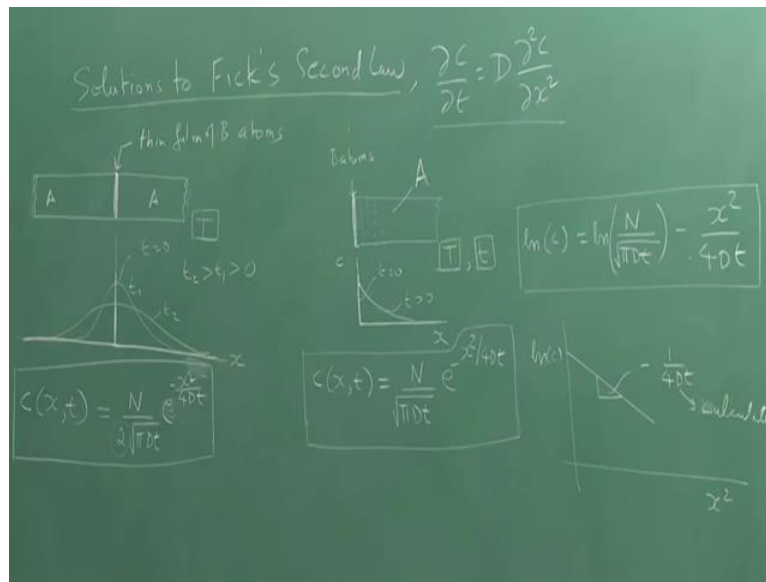 Solutions to Fick's Second Law, ∂c/∂t = D ∂²c/∂x²
thin film of B atoms
A
A
T
t=0
t₂ > t₁ > 0
t₁
t₂
x
c(x,t) = N/(2√(πDt)) e^(-x²/4Dt)
B atoms
A
T, t
c
t=0
t>0
x
c(x,t) = N/√(πDt) e^(-x²/4Dt)
ln(c) = ln(N/√(πDt)) - x²/4Dt
ln(c)
- 1/4Dt
x²